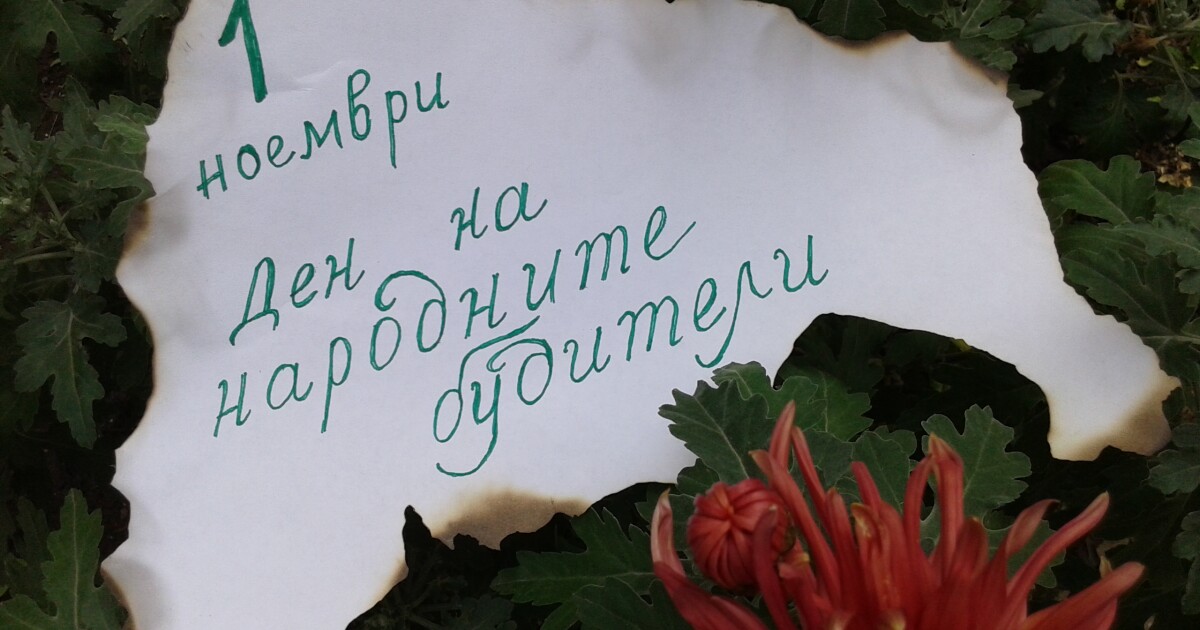 1
ноември
Ден на
народните
будители